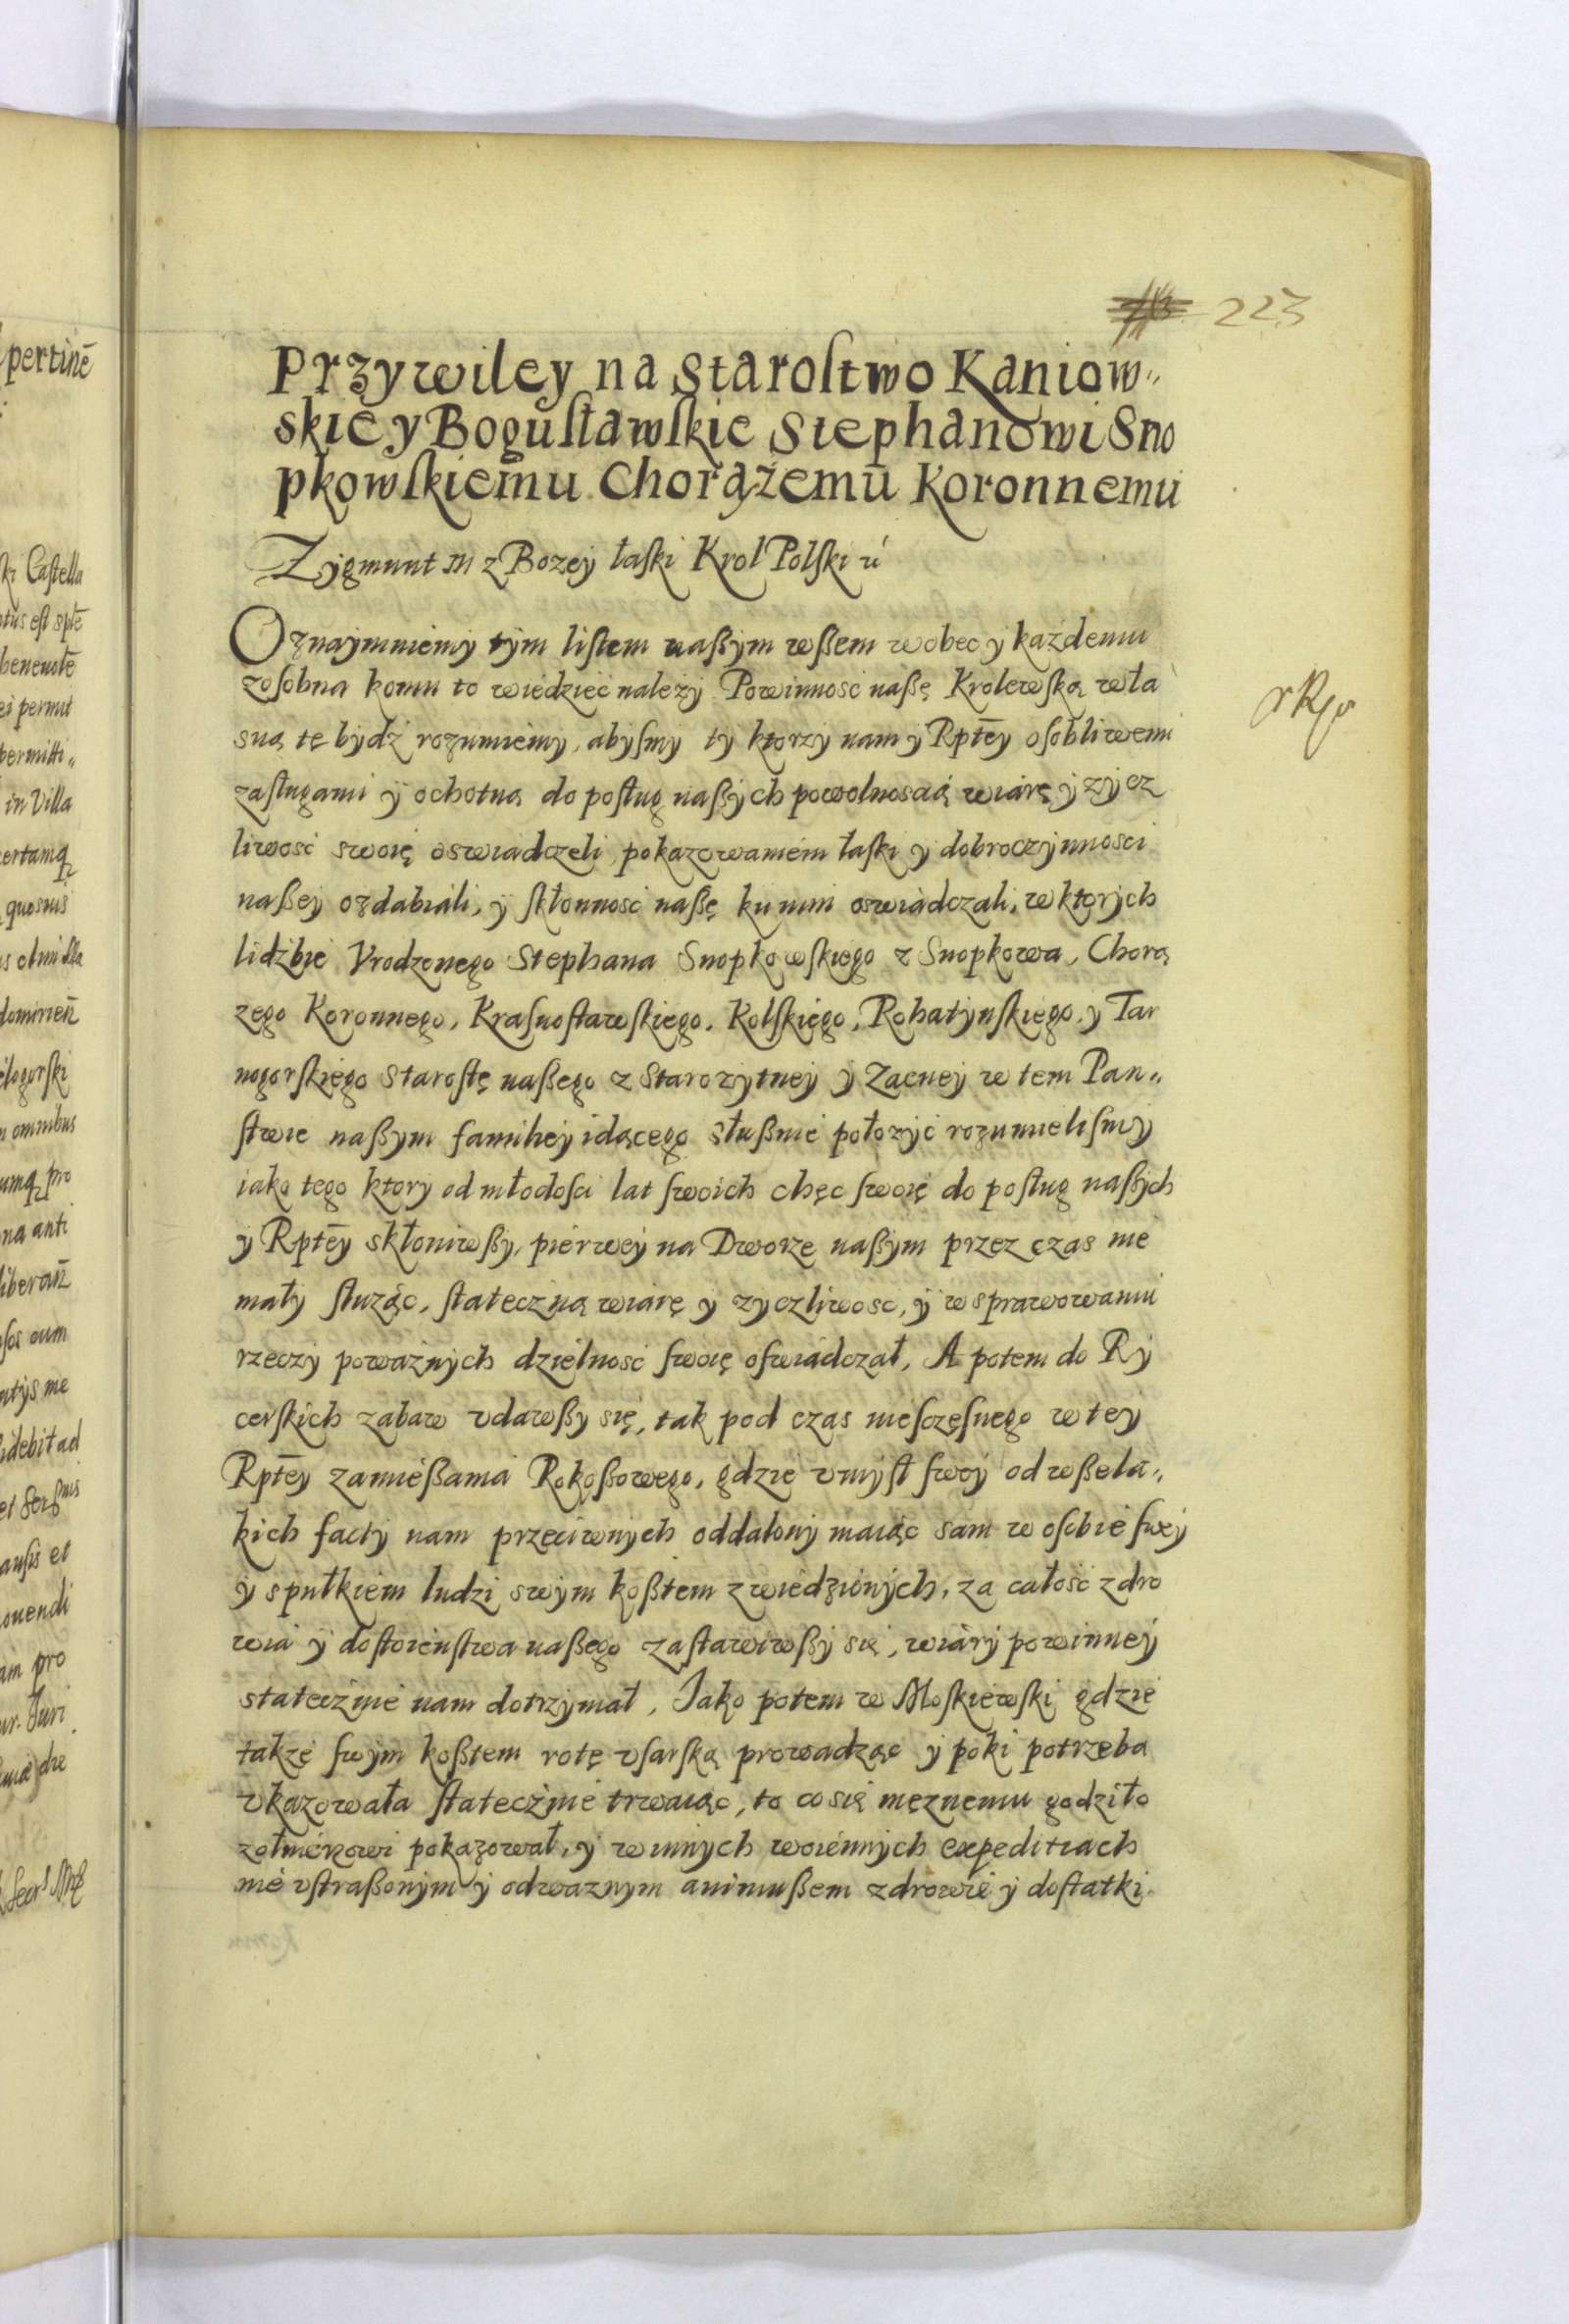 223
Przywiley na Starostwo Kaniow„
skie y Bogusławskie Stephanowi Sno
pkowskiemu Chorążemu Koronnemu
Zygmunt III z Bozey łaski Krol Polski
Oznaymuiemy tym listem naszym wszem wobec y każdemu
zosobna komu to wiedzieć należy Powinnosc naszę Krolewską wła
sną tę bydź rozumiemy, abysmy ty ktorzy nam y Rptey osobliwemi
zasługami y ochotną do posług naszych powolnoscią wiarę y zycz
liwosć swoię oswiadczeli pokazowaniem łaski y dobroczynnosci
naszey ozdabiali, y skłonnosć naszę ku nim oswiadczali, w ktorych
lidzbie Vrodzonego Stephana Snopkowskiego z Snopkowa, Chorą
zego Koronnego, Krasnostawskiego, Kolskiego, Rohatynskiego, y Tar
nogorskiego Starostę naszego z Starozytney y Zacney w tem Pan„
stwie naszym familiey idącego słusznie położyć rozumielismy
iako tego ktory od młodosci lat swoich chęc swoię do posług naszych
y Rptey skłoniwszy, pierwey na Dworze naszym przez czas nie
mały służąc, stateczną wiarę y zyczliwosc, y w sprawowaniu
rzeczy poważnych dzielnosć swoię oswiadczał, A potem do Ry
cerskich zabaw vdawszy się, tak pod czas niesczęsnego w tey
Rptey zamieszania Rokoszowego, gdzie vmysł swoy od wszela„
kich facty nam przeciwnych oddalony maiąc sam w osobie swey
y spułkiem ludzi swym kosztem zwiedzionych, za całość zdro
wia y dostoienstwa naszego zastawiwszy się, wiary powinney
statecznie nam dotrzymał, Jako potem w Moskiewski gdzie
także swym kosztem rotę vsarską prowadząc y poki potrzeba
vkazowała statecznie trwaiąc, to co się mężnemu godziło
zołnierzowi pokazował, y w innych woiennych expeditiach
nie vstraszonym y odważnym animuszem zdrowie y dostatki